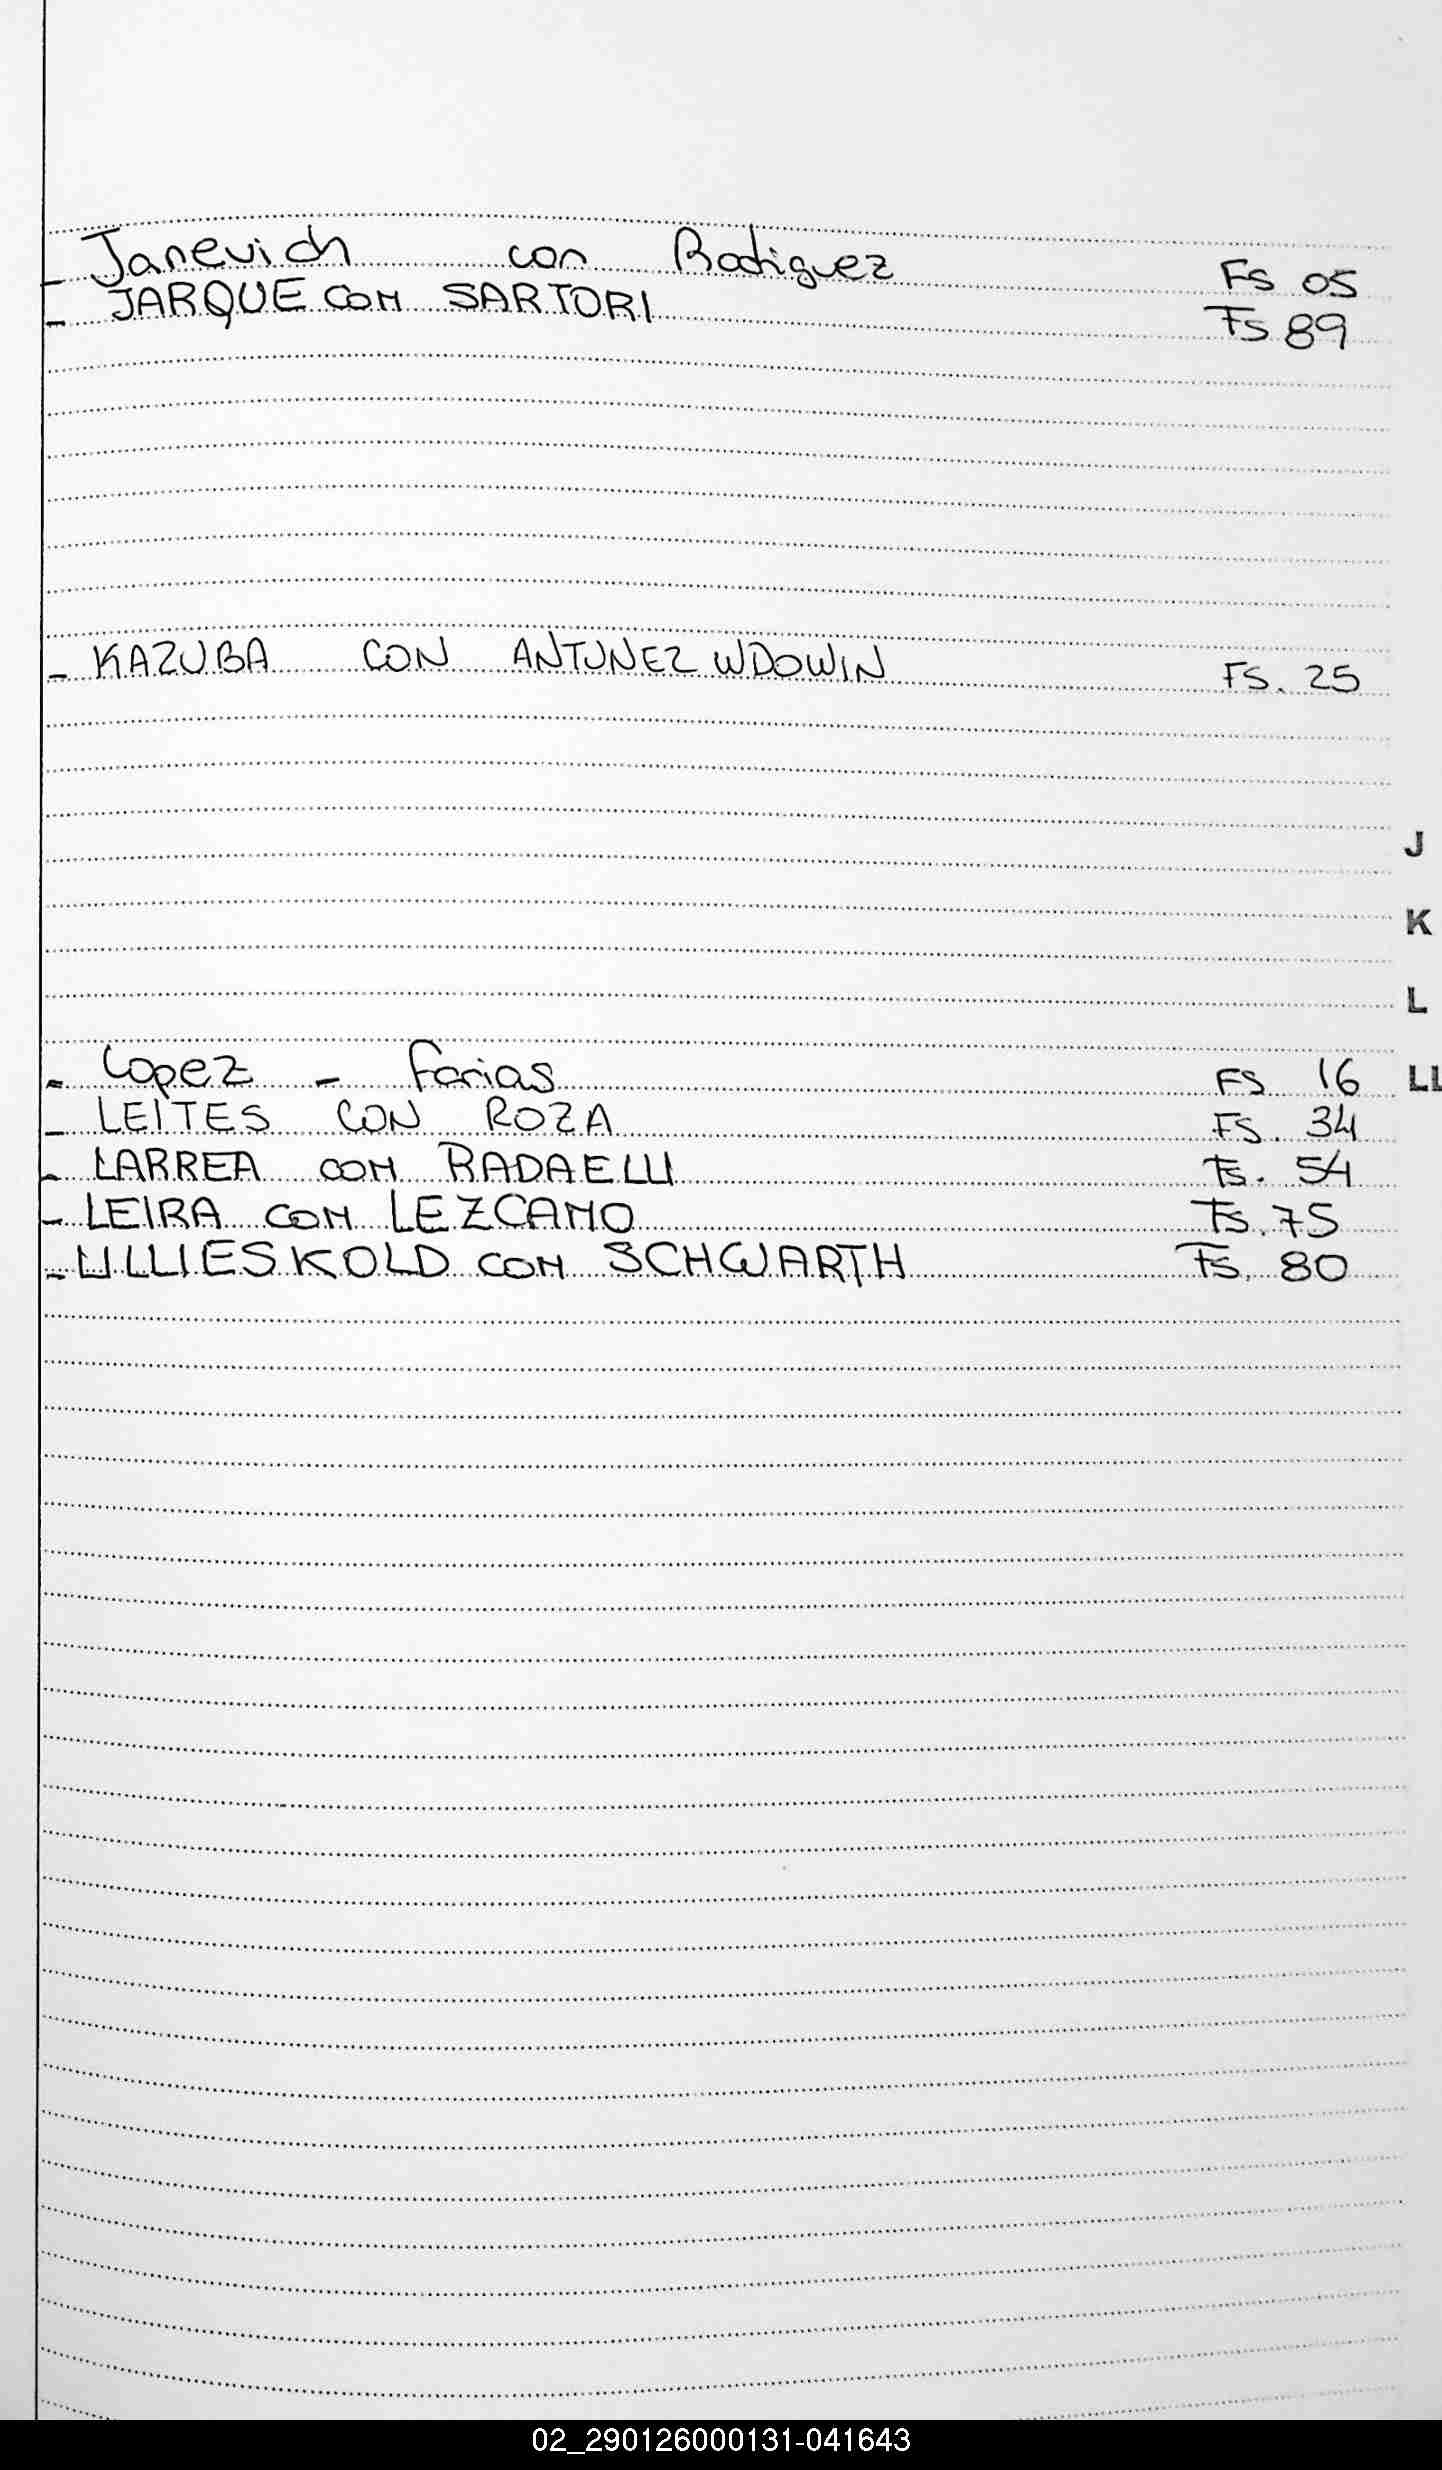 - Janevich con Rodriguez FS 05
- JARQUE CON SARTORI FS 89
- KAZUBA CON ANTUNEZ WDOWIN FS. 25
J
K
L
- Lopez - Farias FS 16
LL
- LEITES CON ROZA FS. 34
- LARREA CON RADAELLI FS. 54
- LEIRA CON LEZCANO FS. 75
- LILLIESKOLD CON SCHWARTH FS. 80
02_290126000131-041643